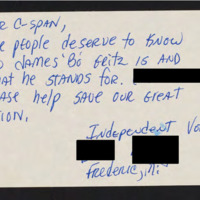 R C-SPAN,
E PEOPLE DESERVE TO KNOW
O JAMES "BO" GRITZ IS AND
AT HE STANDS FOR.
ASE HELP SAVE OUR GREAT
ION.
Independent Vo
FREDERIC,